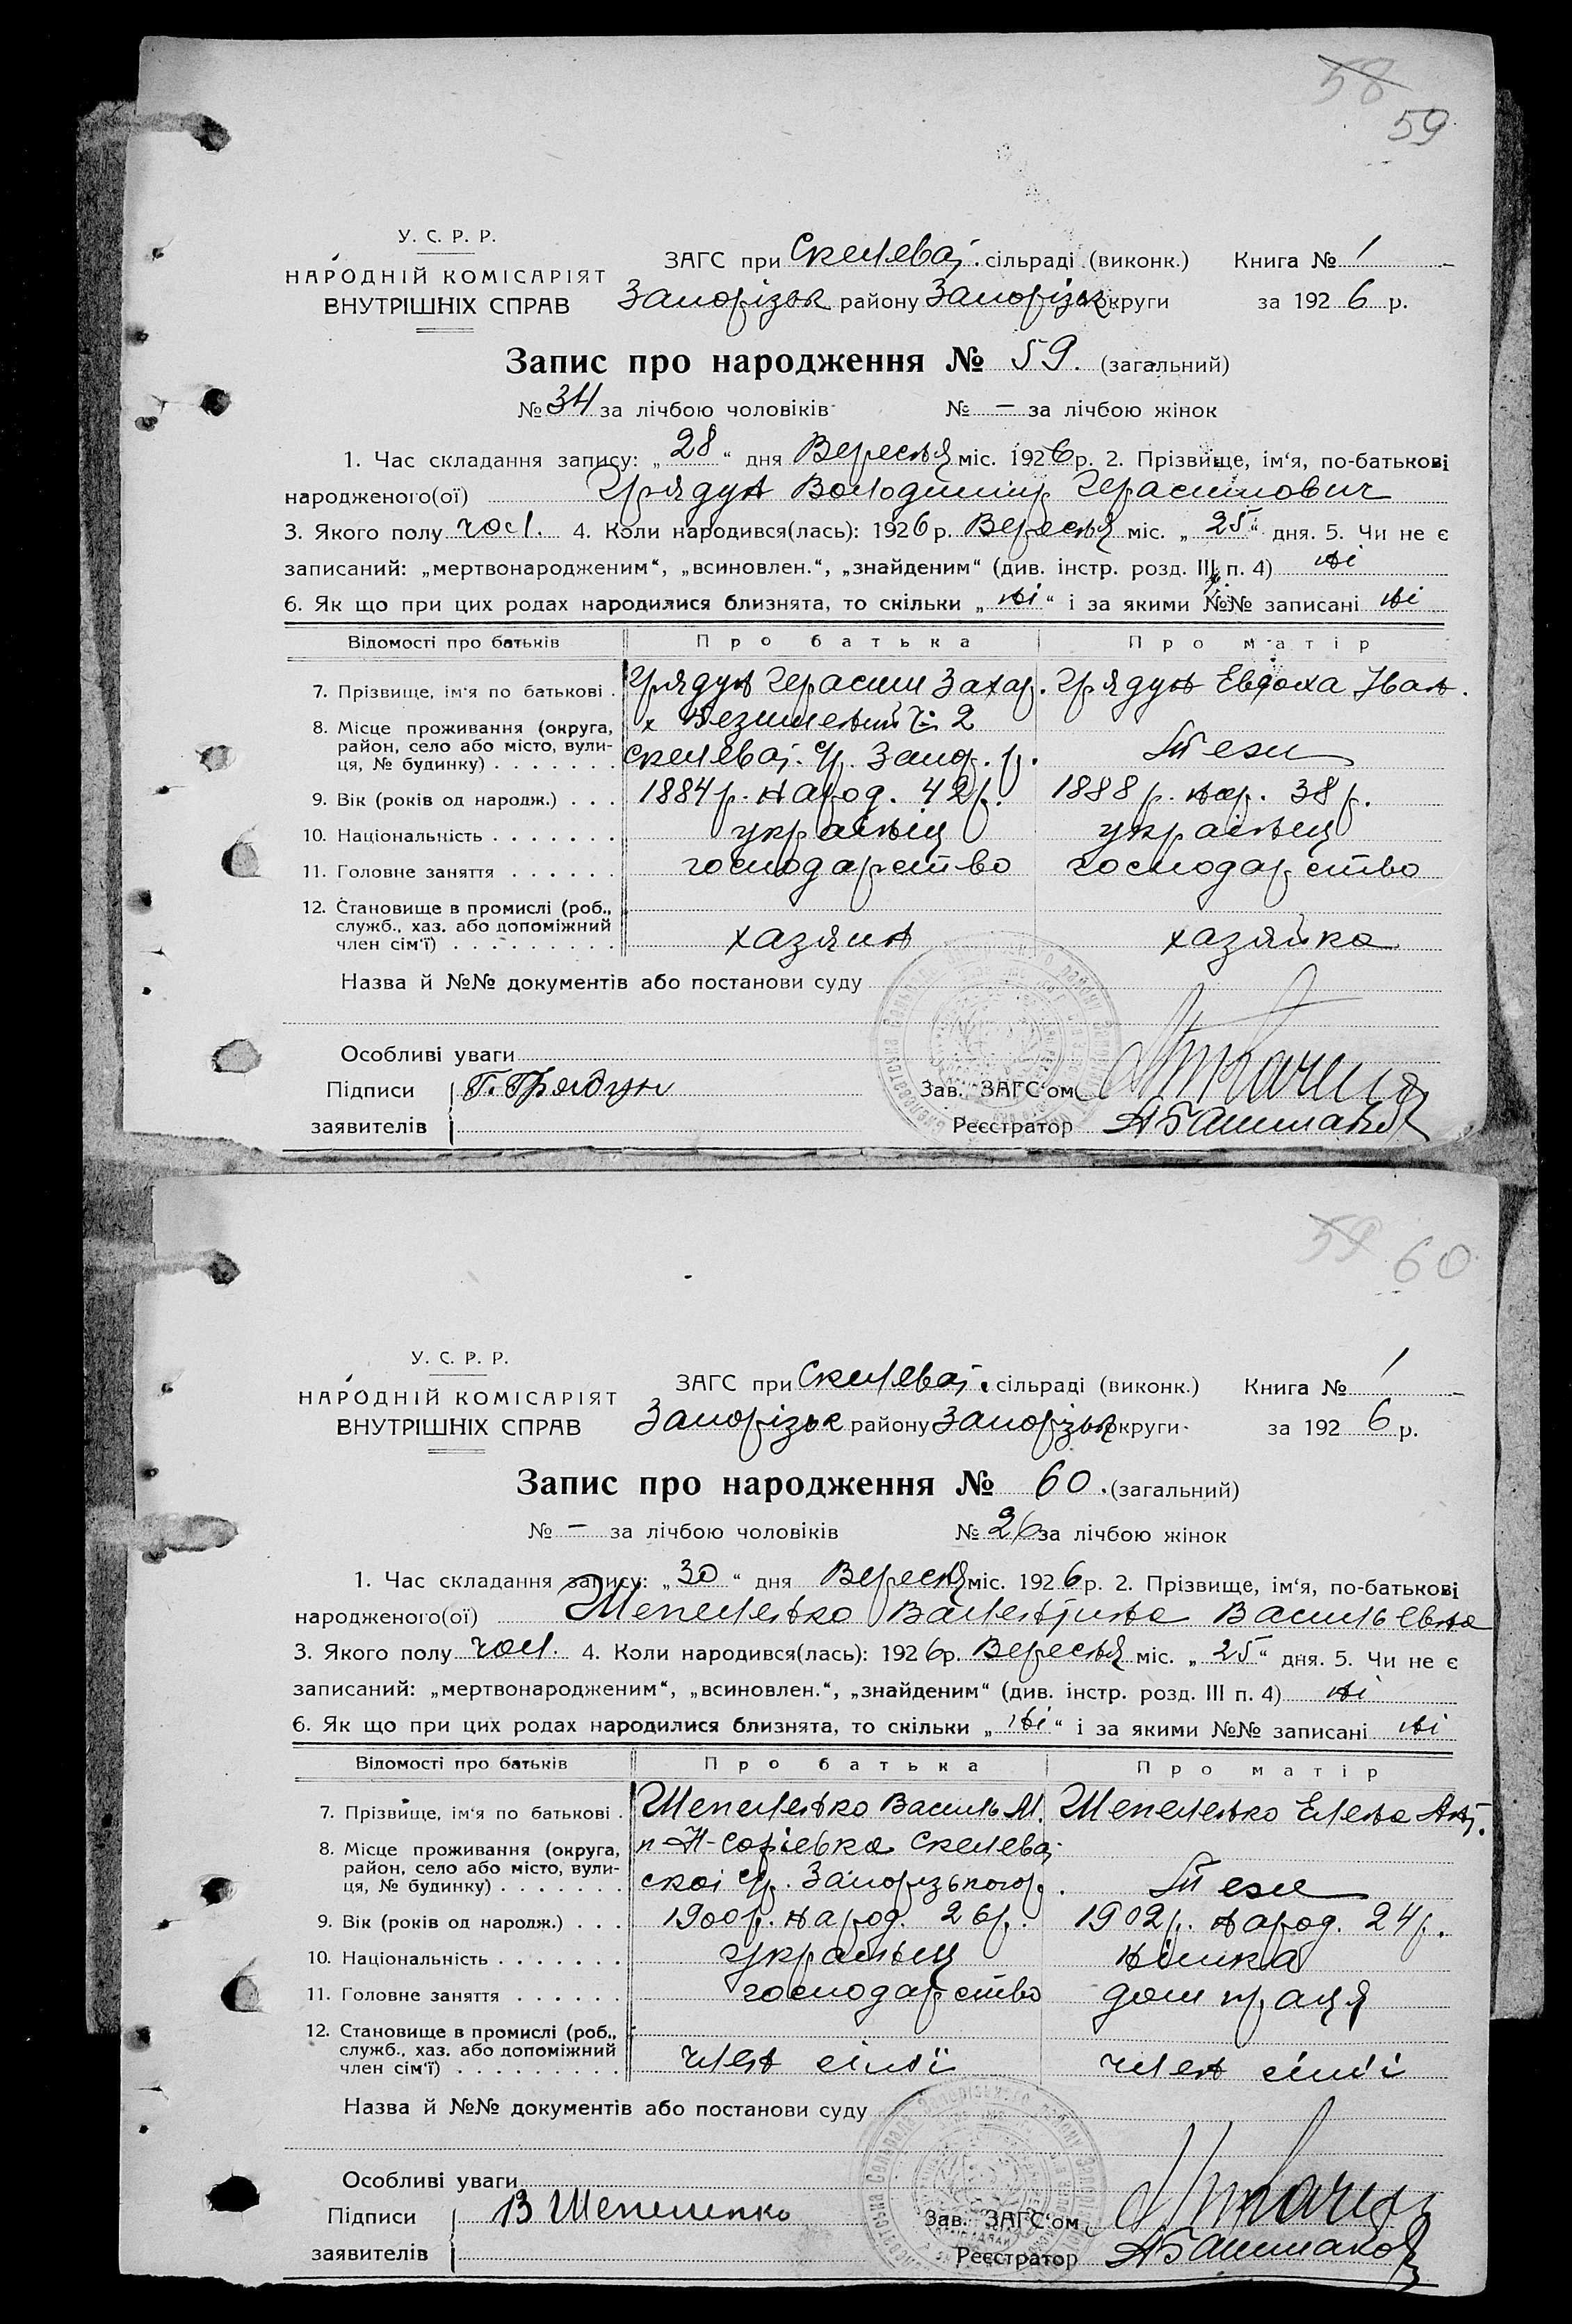 58
59
У. С. Р. Р.
НАРОДНІЙ КОМІСАРІЯТ
ВНУТРІШНІХ СПРАВ
ЗАГС при Скелеват. сільраді (виконк.) Книга № 1
Запорізьк району Запорізьк округи за 1926 р.
Запис про народження № 59. (загальний)
№ 34 за лічбою чоловіків № – за лічбою жінок
1. Час складання запису: „28“ дня Вересня міс. 1926 р. 2. Прізвище, ім‘я, по-батькові
народженого(ої) Грядун Володимир Герасимович
3. Якого полу чол. 4. Коли народився(лась): 1926 р. Вересня міс. „25“ дня. 5. Чи не є
записаний: „мертвонародженим“, „всиновлен.“, „знайденим“ (див. інстр. розд. III п. 4) ні
6. Як що при цих родах народилися близнята, то скільки „ні“ і за якими №№ записані ні
Відомості про батьків Про батька Про матір
7. Прізвище, ім‘я по батькові . Грядун Герасим Захар. Грядун Евдоха Іван.
8. Місце проживання (округа, х Безимений № 2
район, село або місто, вули-
ця, № будинку) . . . . . . . Запор. р. Теж
9. Вік (років од народж.) . . . 1884 р. народ. 42 р. 1888 р. нар. 38 р.
10. Національність . . . . . . . українець українец
11. Головне заняття . . . . . . господарство господарство
12. Становище в промислі (роб.,
служб., хаз. або допоміжний
член сім‘ї) . . . . . . . . . хазяин хазяйка
Назва й №№ документів або постанови суду
Особливі уваги
Підписи Г. Грядун Зав. ЗАГС‘ом
заявителів Реєстратор А Башмаков
59 60
У. С. Р. Р.
НАРОДНІЙ КОМІСАРІЯТ
ВНУТРІШНІХ СПРАВ
ЗАГС при Скелеват. сільраді (виконк.) Книга № 1
Запорізьк району Запорізьк округи за 1926 р.
Запис про народження № 60. (загальний)
№ – за лічбою чоловіків № 26 за лічбою жінок
1. Час складання запису: „30“ дня Вересня міс. 1926 р. 2. Прізвище, ім‘я, по-батькові
народженого(ої) Шепеленко Валентина Васильевна
3. Якого полу чол. 4. Коли народився(лась): 1926 р. Вересня міс. „25“ дня. 5. Чи не є
записаний: „мертвонародженим“, „всиновлен.“, „знайденим“ (див. інстр. розд. III п. 4) ні
6. Як що при цих родах народилися близнята, то скільки „ні“ і за якими №№ записані ні
Відомості про батьків Про батька Про матір
7. Прізвище, ім‘я по батькові . Шепеленко Василь М. Шепеленко Елена Ант.
8. Місце проживання (округа, Н-Софіевка Скелева
район, село або місто, вули-
ця, № будинку) . . . . . . . ської с/р. Запорізького р. Теж
9. Вік (років од народж.) . . . 1900 р. народ. 26 р. 1902 р. народ. 24 р.
10. Національність . . . . . . . українец німка
11. Головне заняття . . . . . . господарство дом праця
12. Становище в промислі (роб.,
служб., хаз. або допоміжний
член сім‘ї) . . . . . . . . . член сім'ї член сім'ї
Назва й №№ документів або постанови суду
Особливі уваги
Підписи В Шепеленко Зав. ЗАГС‘ом
заявителів Реєстратор А Башмаков